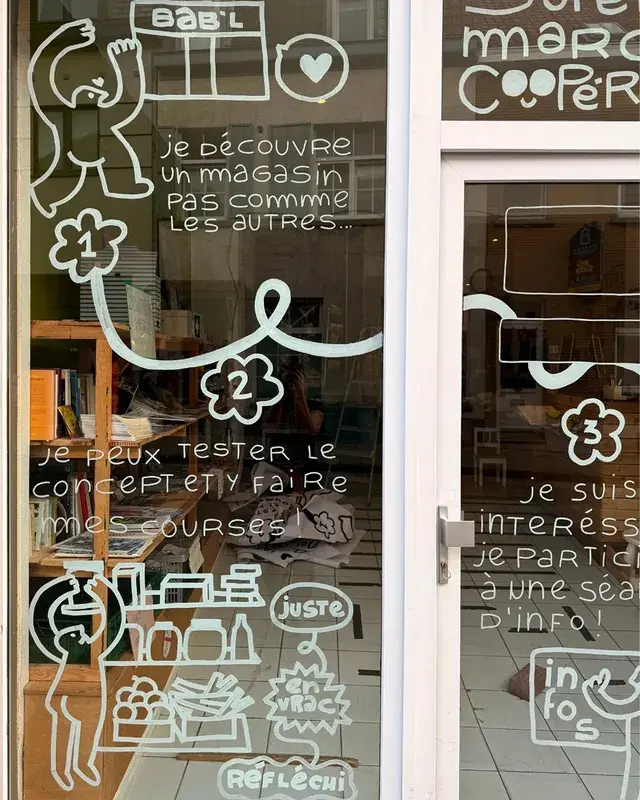 BAB'L
je découvre
un magasin
pas comme
les autres...
1
2
je peux tester le
concept et y faire
mes courses !
juste
en
vrac
réfléchi
marc
coopér
3
je suis
intéress
je partici
à une séa
d'info !
in
fos